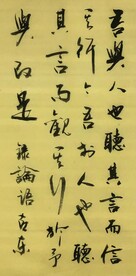 吾與人也聽其言而信
其行今吾於人也聽
其言而觀其行於予
與改是 錄論語